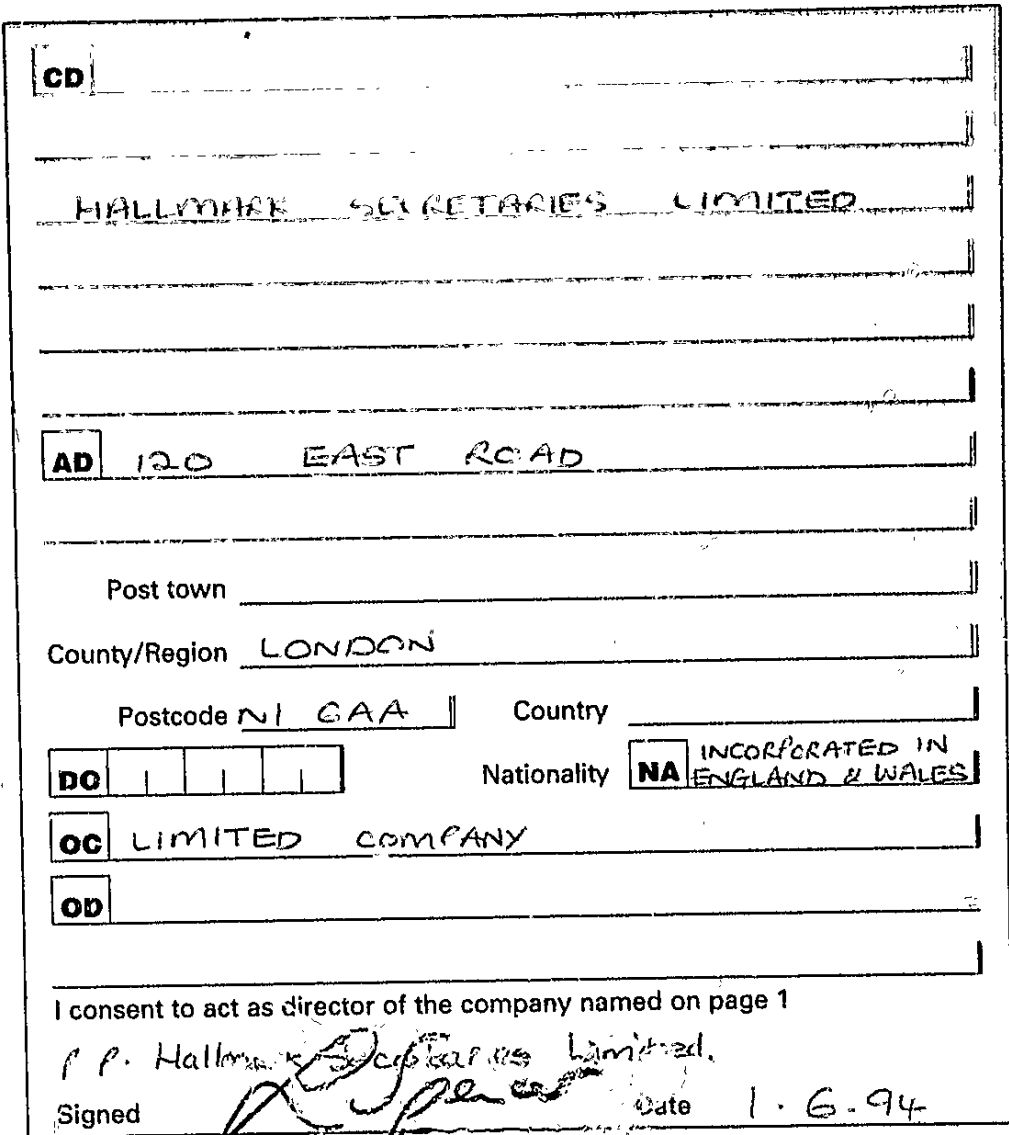 CD
HALLMARK SECRETARIES LIMITED
AD 120 EAST ROAD
Post town
County/Region LONDON
Postcode N1 6AA Country
DO Nationality NA INCORPORATED IN ENGLAND & WALES
OC LIMITED COMPANY
OD
I consent to act as director of the company named on page 1
P P. Hallmark Secretaries Limited.
Signed Date 1.6.94